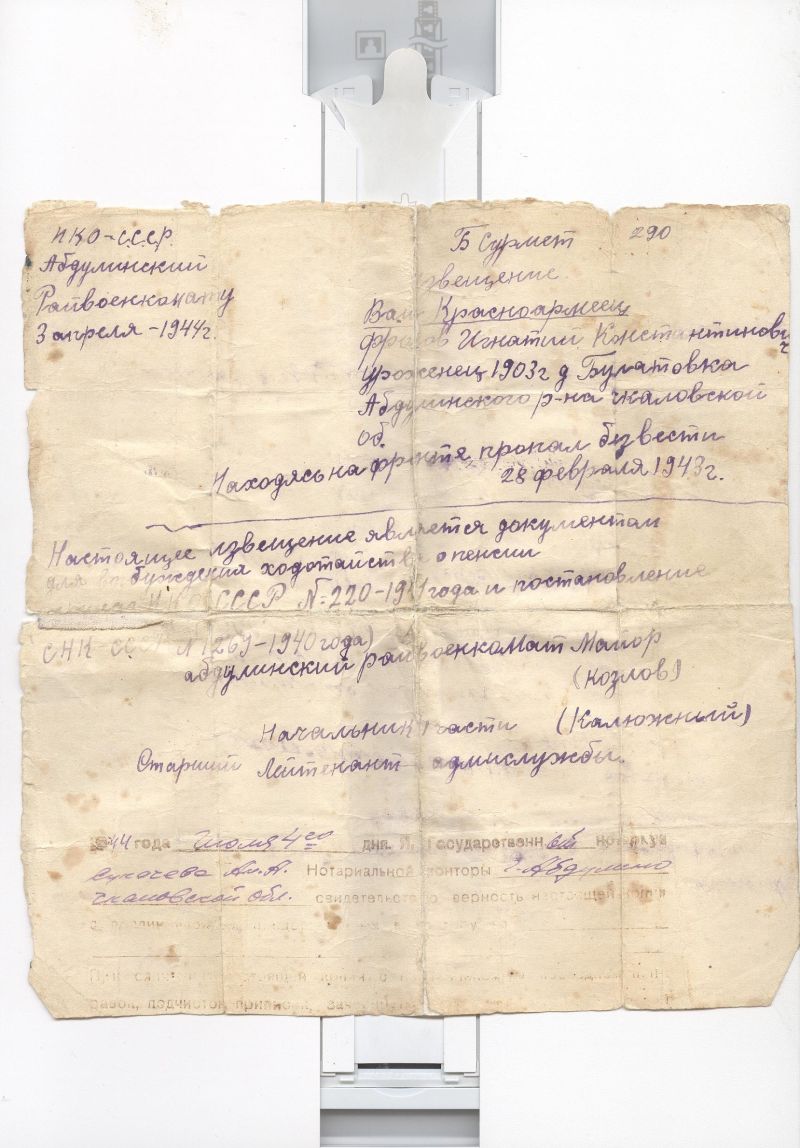 НКО-СССР.
Абдулинский
Райвоенкомату
3 апреля -1944г.
Б Сурмет 290
звещение
Ваш Красноармеец
Фролов Игнатий Константинович
уроженец 1903г д Булатовка
Абдулинского р-на чкаловской
об.
Находясь на фронте пропал безвести
28 февраля 1943г.
Настоящее извещение является документом
для возбуждения ходотайства о пенсии
СССР №220-1941 года и постановление
СНК СССР №1269-1940 года)
абдулинский райвоенкомат Майор
(Козлов)
Начальник части (Калюжный)
Старший Лейтенант админслужбы.
1944 года Июля 4го дня. Я, Государственный нотариус
Сукачева Ал.А. Нотариальной конторы г. Абдулино
Чкаловской обл. свидетельствую верность настоящей копии
с подлинником
При сличении настоящей копии с подлинником
подчисток, приписок,